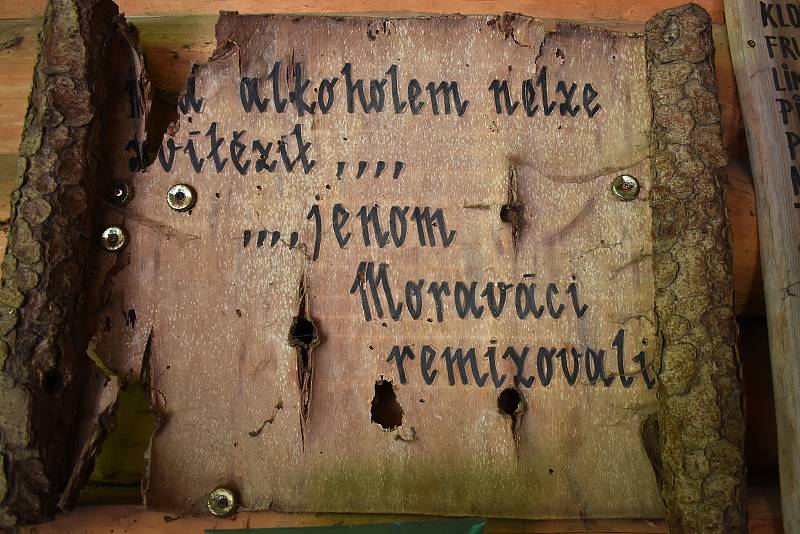 Nad alkoholem nelze
zvítězit ,,,,
,,,,jenom
Moraváci
remizovali
KLO
FRU
LIM